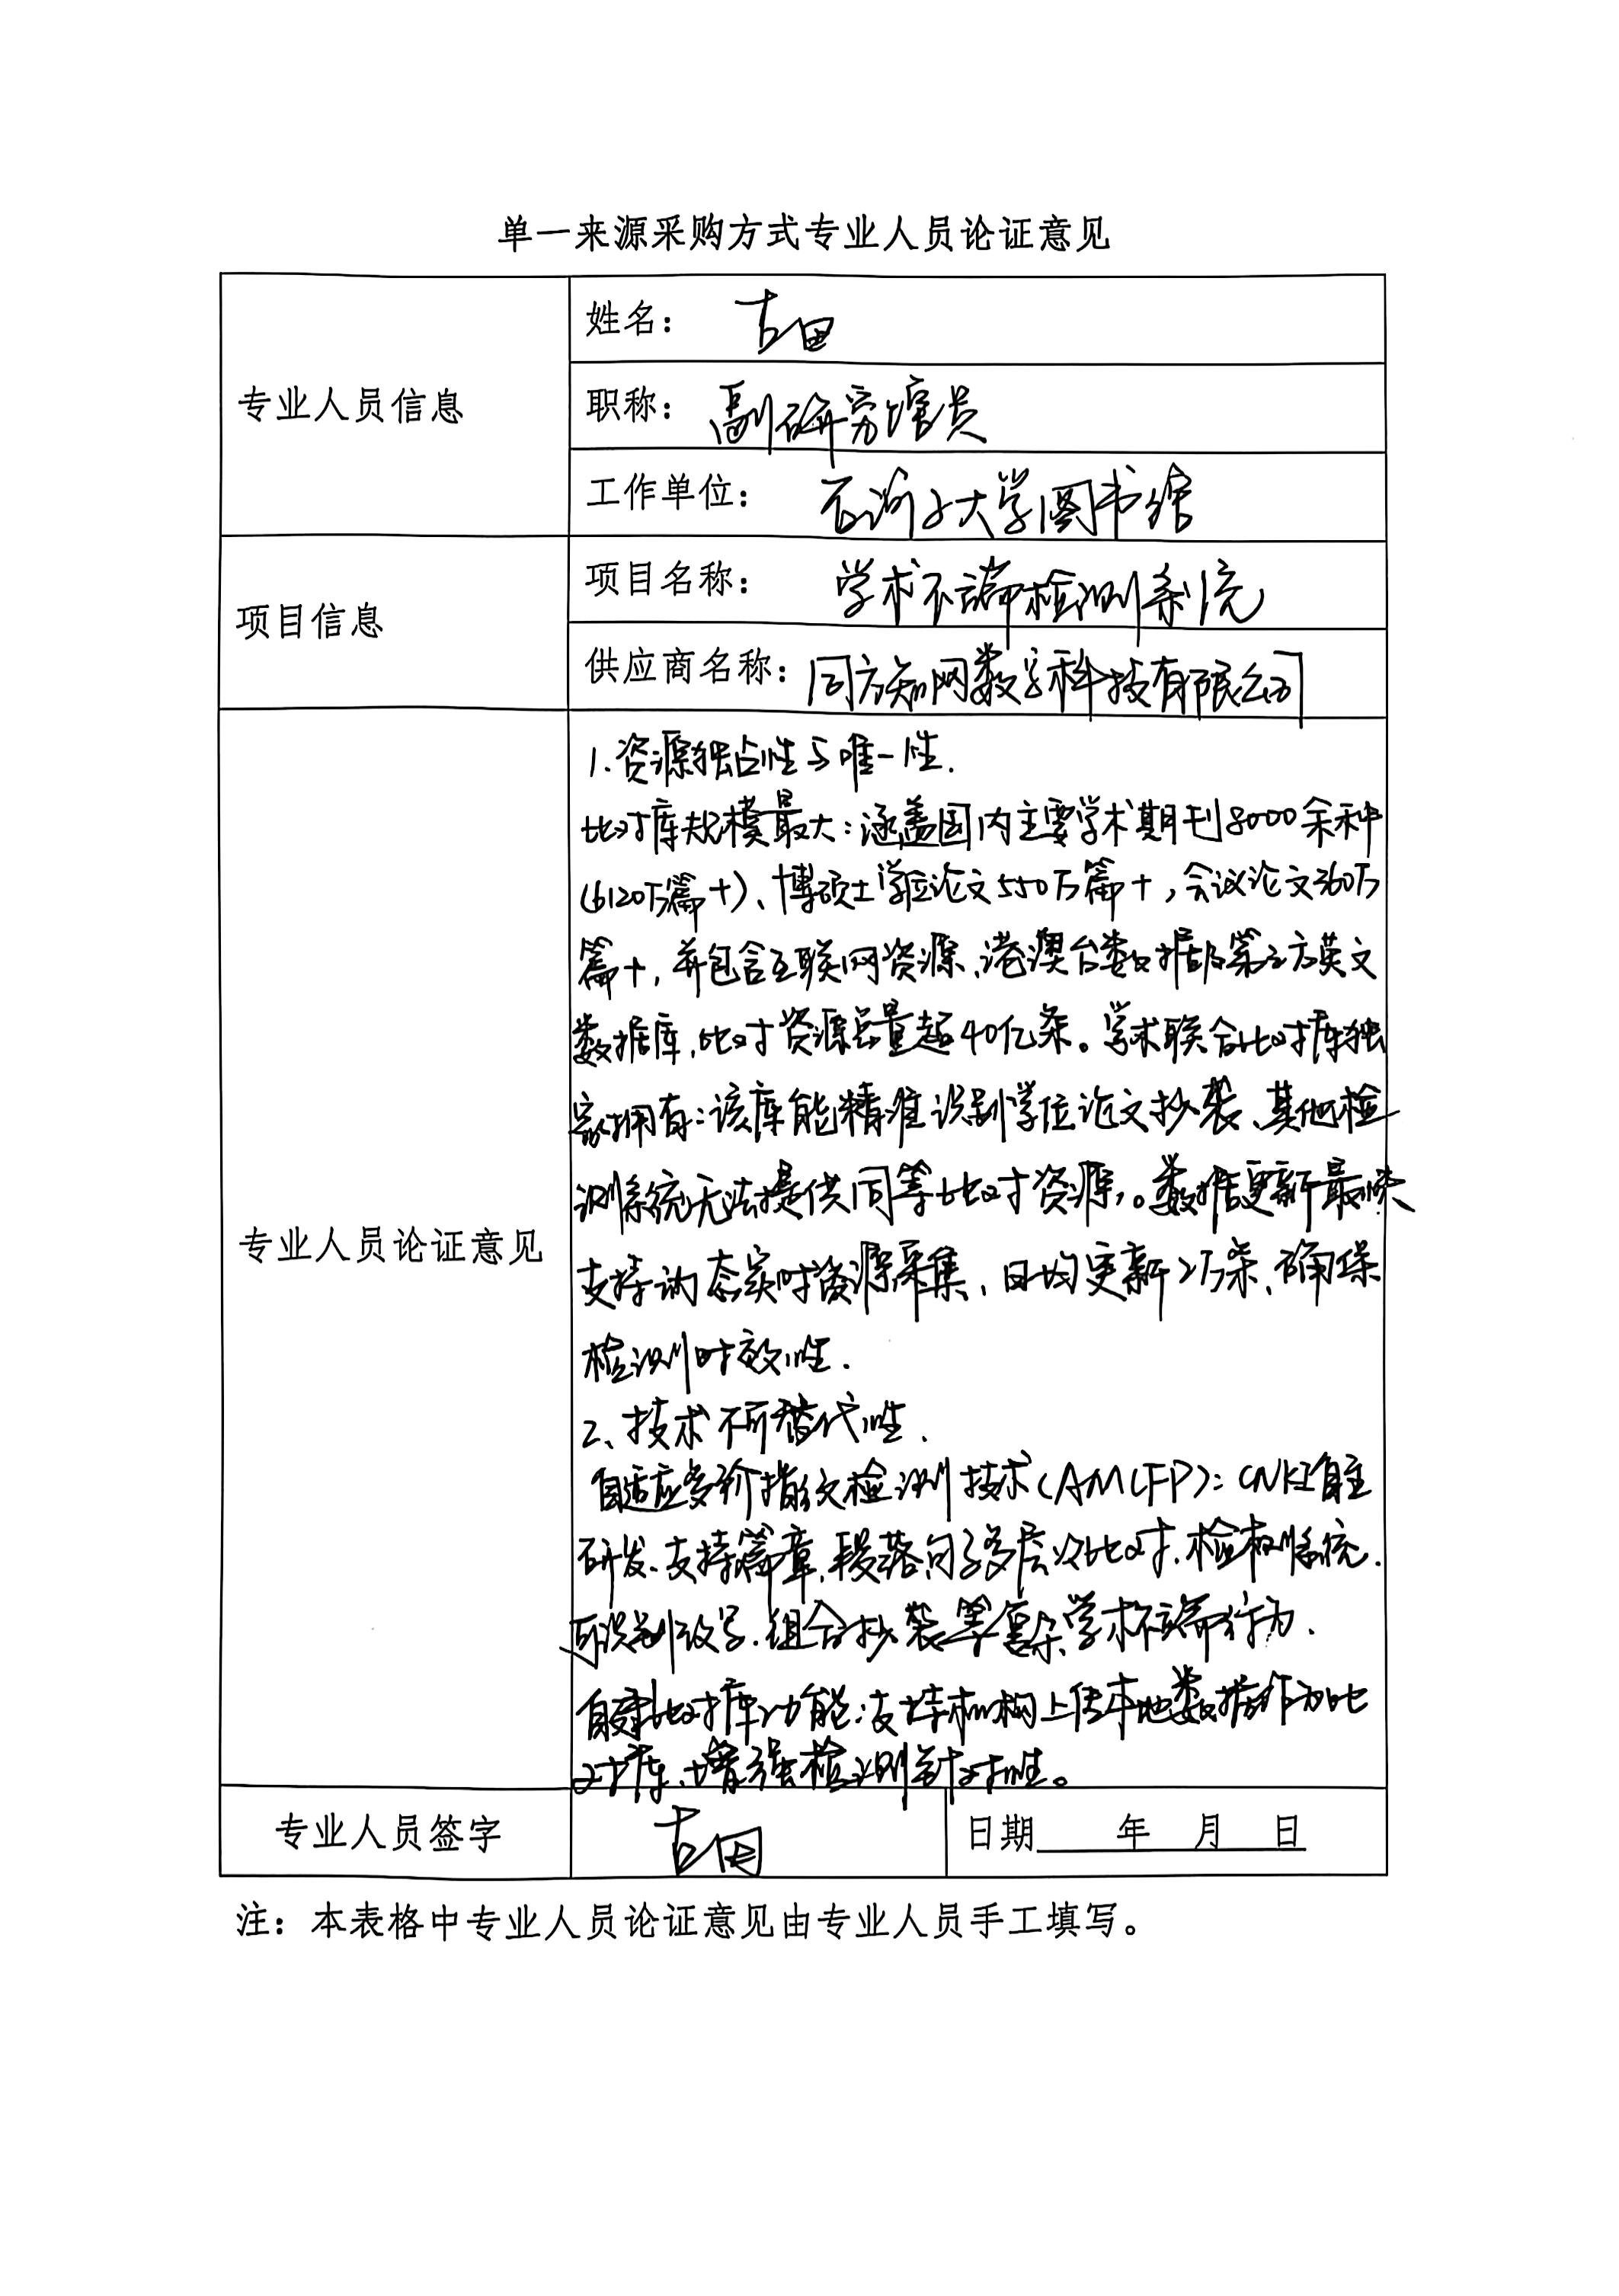 单一来源采购方式专业人员论证意见
专业人员信息
姓名：古田
职称：副研究馆员
工作单位：石河子大学图书馆
项目信息
项目名称：学术不端检测系统
供应商名称：同方知网数字科技有限公司
专业人员论证意见
1.资源独占性与唯一性.
比对库规模最大：涵盖国内主要学术期刊8000余种
(6120万篇+)、博硕士学位论文550万篇+，会议论文360万
篇+，并包含互联网资源、港澳台数据及第三方英文
数据库，比对资源总量超40亿条。学术联合比对库独
家拥有：该库能精准识别学位论文抄袭、其他检
测系统无法提供同等比对资源。数据更新最快
支持动态实时资源采集，日均更新2万条、确保
检测时效性.
2、技术不可替代性.
自适应多阶指纹检测技术(AMLFP)：CNKI自主
研发、支持篇章、段落句子多层次比对.检测系统.
可识别改写.组合抄袭等复杂学术不端行为.
自建比对库功能：支持机构上传本地数据作为比
对库、增强检测针对性。
专业人员签字
古田
日期 年 月 日
注：本表格中专业人员论证意见由专业人员手工填写。